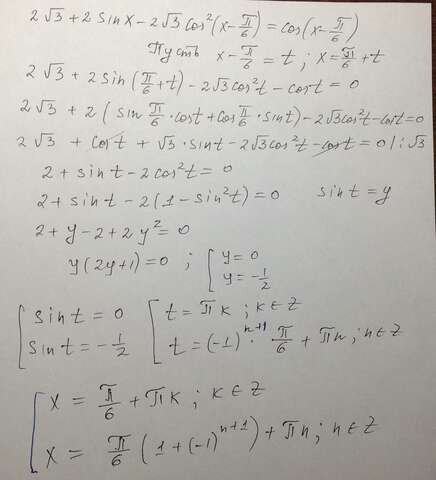 2√3 + 2 sin x - 2√3 cos²(x - π/6) = cos(x - π/6)
Пусть x - π/6 = t ; x = π/6 + t
2√3 + 2 sin(π/6 + t) - 2√3 cos²t - cos t = 0
2√3 + 2(sin π/6 · cos t + cos π/6 · sin t) - 2√3 cos²t - cos t = 0
2√3 + cos t + √3 · sin t - 2√3 cos²t - cos t = 0 /: √3
2 + sin t - 2 cos²t = 0
2 + sin t - 2(1 - sin²t) = 0 sin t = y
2 + y - 2 + 2y² = 0
y(2y+1) = 0 ; [ y = 0
y = -1/2
[ sin t = 0 [ t = πk ; k ∈ Z
sin t = -1/2 t = (-1)ⁿ⁺¹ · π/6 + πn ; n ∈ Z
[ x = π/6 + πk ; k ∈ Z
x = π/6 (1 + (-1)ⁿ⁺¹) + πn ; n ∈ Z